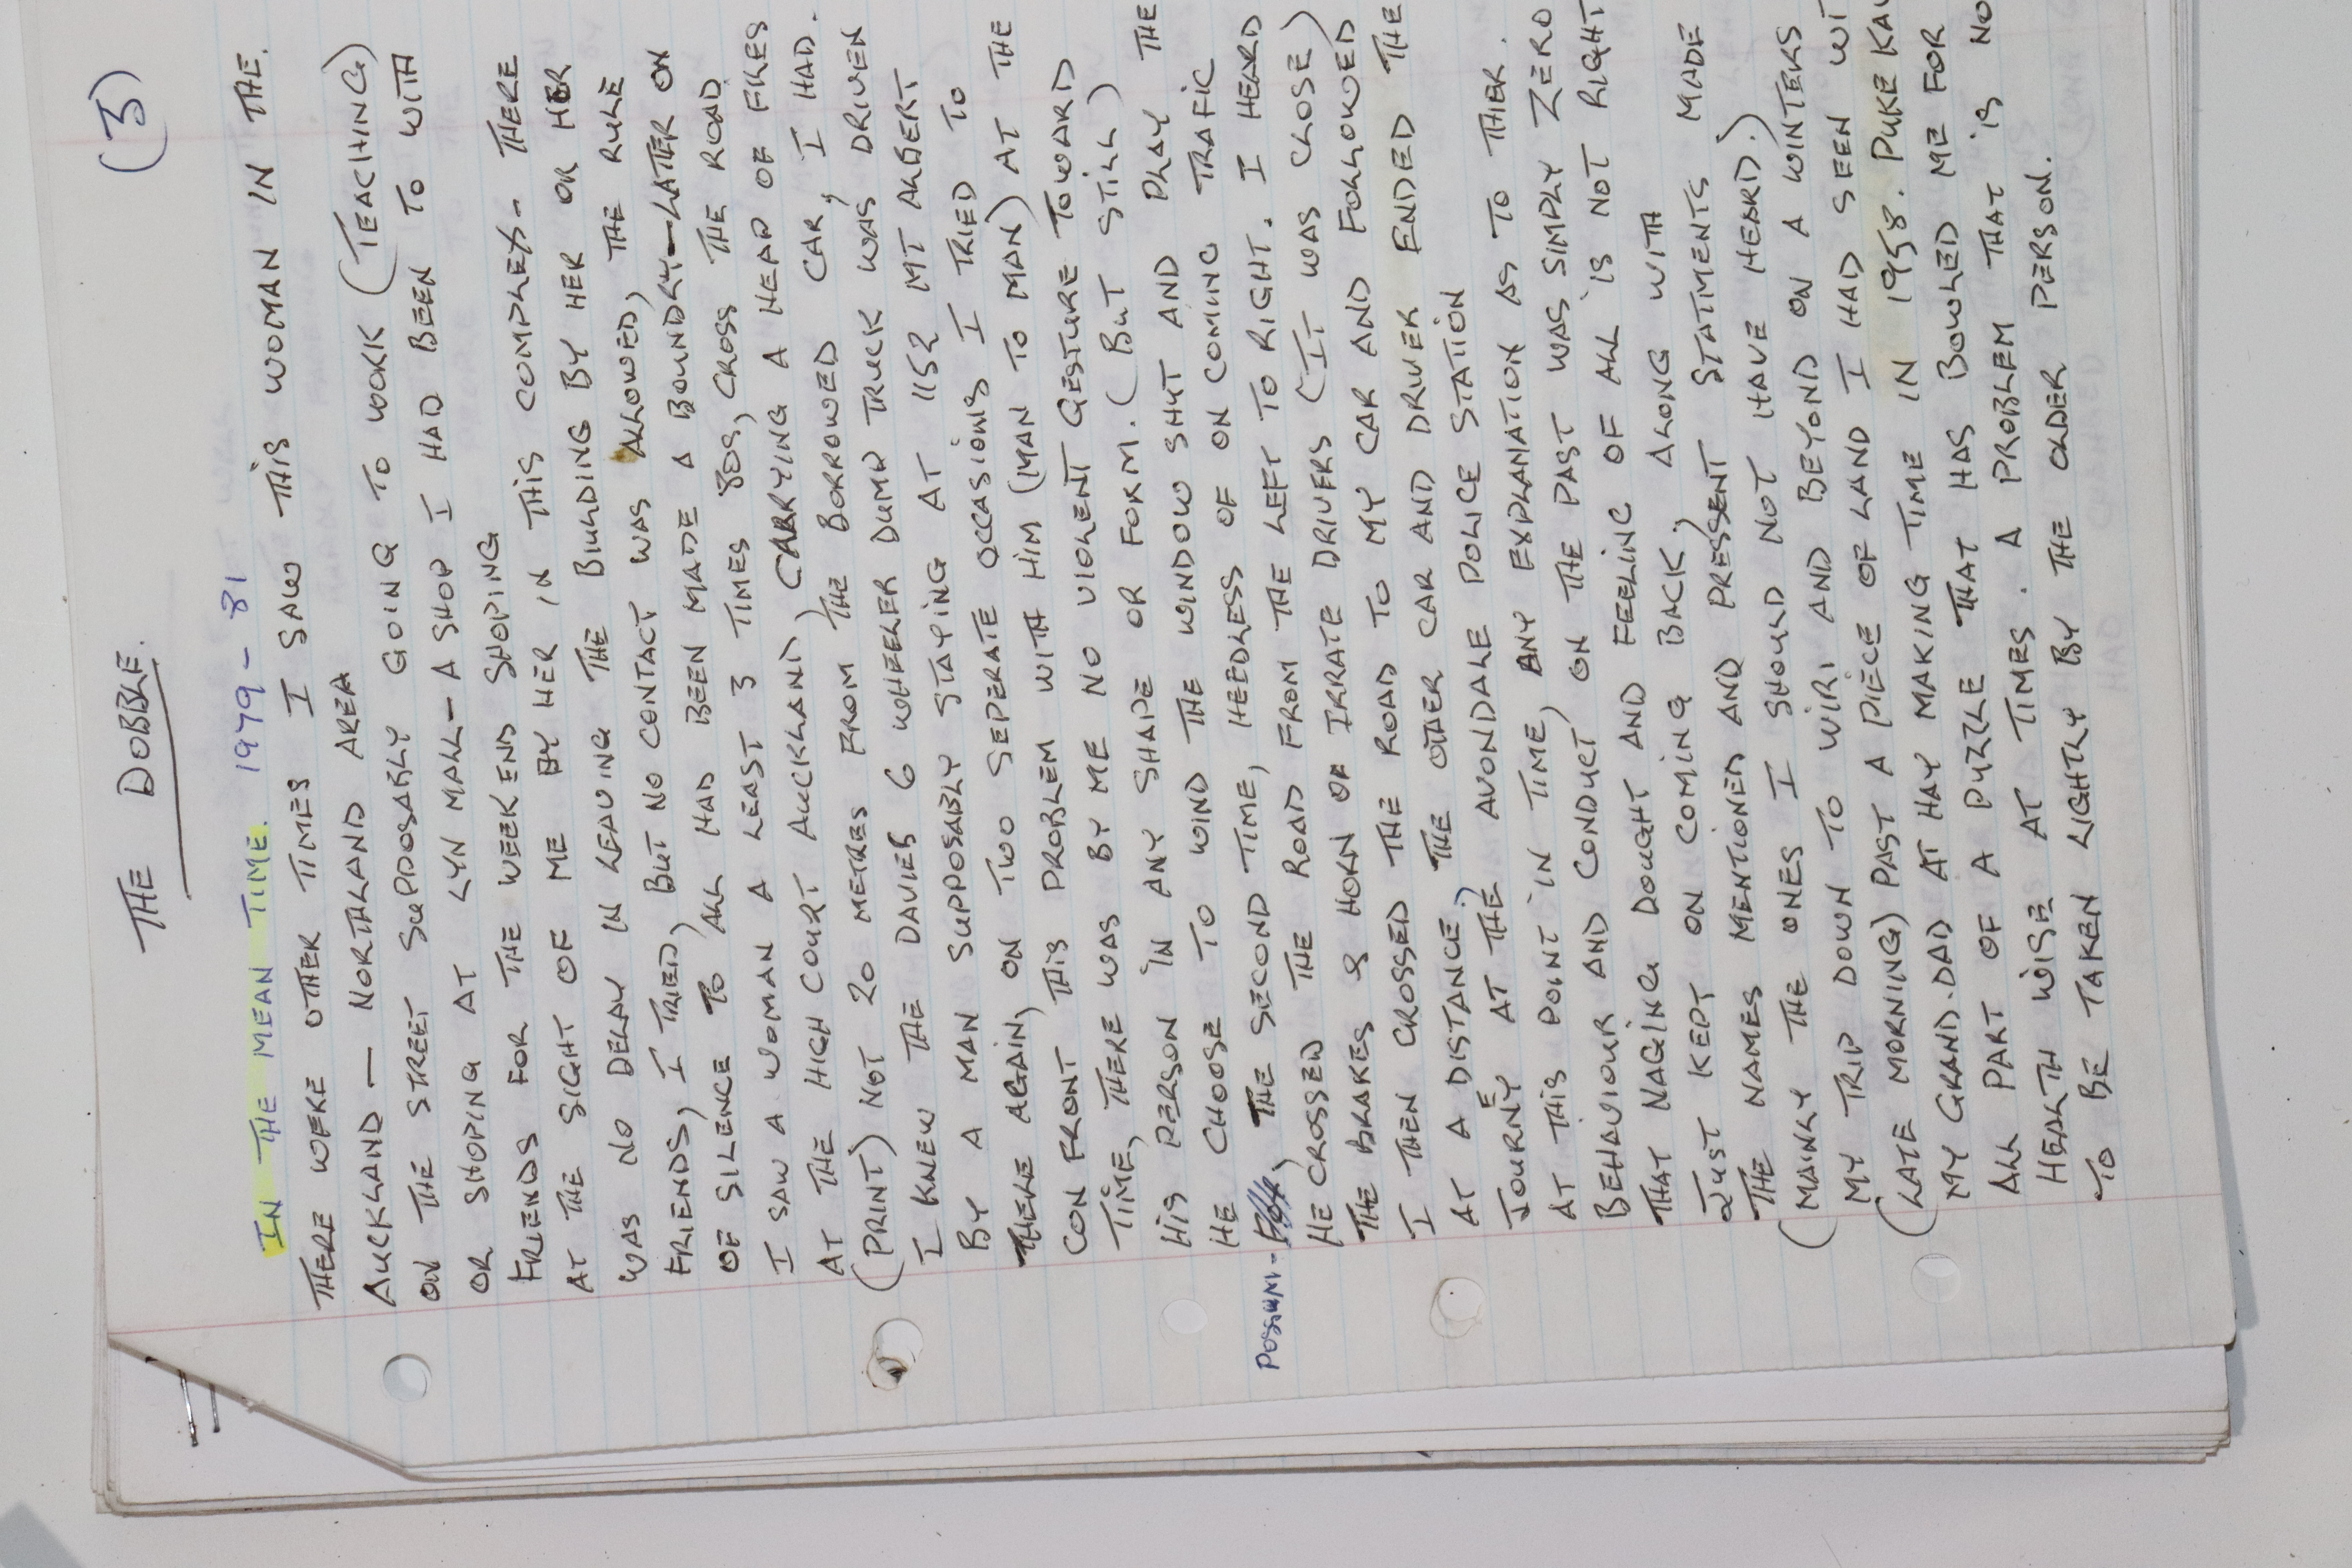 (3)
THE DOBBLE.
IN THE MEAN TIME. 1979 - 81
THERE WERE OTHER TIMES I SAW THIS WOMAN IN THE.
AUCKLAND — NORTHLAND AREA
ON THE STREET SUPPOSABLY GOING TO WORK (TEACHING)
OR SHOPING AT LYN MALL - A SHOP I HAD BEEN TO WITH
FRIENDS FOR THE WEEKEND SHOPING
AT THE SIGHT OF ME BY HER IN THIS COMPLEX- THERE
WAS NO DELAY IN LEAVING THE BIULDING BY HER OR HER
FRIENDS, I TRIED, BUT NO CONTACT WAS ALLOWED, THE RULE
OF SILENCE TO ALL HAD BEEN MADE A BOUNDRY—LATER ON
I SAW A WOMAN A LEAST 3 TIMES 80S, CROSS THE ROAD
AT THE HIGH COURT AUCKLAND, CARRYING A HEAP OF FILES
(PRINT) NOT 20 METRES FROM THE BORROWED CAR, I HAD.
I KNEW THE DAVIES 6 WHEELER DUMP TRUCK WAS DRIVEN
BY A MAN SUPPOSABLY STAYING AT 1152 MT ALBERT
THERE AGAIN, ON TWO SEPERATE OCCASIONS I TRIED TO
CON FRONT THIS PROBLEM WITH HIM (MAN TO MAN) AT THE
TIME, THERE WAS BY ME NO VIOLENT GESTURE TOWARD
HIS PERSON IN ANY SHAPE OR FORM. (BUT STILL)
HE CHOOSE TO WIND THE WINDOW SHUT AND PLAY THE
POSSUM - , THE SECOND TIME, HEEDLESS OF ON COMING TRAFIC
HE CROSSED THE ROAD FROM THE LEFT TO RIGHT. I HEARD
THE BRAKES & HORN OF IRRATE DRIVERS (IT WAS CLOSE)
I THEN CROSSED THE ROAD TO MY CAR AND FOLLOWED
AT A DISTANCE, THE OTHER CAR AND DRIVER ENDED THE
JOURNEY AT THE AVONDALE POLICE STATION
AT THIS POINT IN TIME, ANY EXPLANATION AS TO THER.
BEHAVIOUR AND CONDUCT, ON THE PAST WAS SIMPLY ZERO
THAT NAGING DOUGHT AND FEELING OF ALL IS NOT RIGHT
JUST KEPT ON COMING BACK, ALONG WITH
THE NAMES MENTIONED AND PRESSENT STATMENTS MADE
(MAINLY THE ONES I SHOULD NOT HAVE HEARD.)
MY TRIP DOWN TO WIRI AND BEYOND ON A WINTERS
(LATE MORNING) PAST A PIECE OF LAND I HAD SEEN WI
MY GRAND.DAD AT HAY MAKING TIME IN 1958. PUKE KAW
ALL PART OF A PUZZLE THAT HAS BOWLED ME FOR
HEALTH WISE AT TIMES. A PROBLEM THAT IS NO
TO BE TAKEN LIGHTLY BY THE OLDER PERSON.